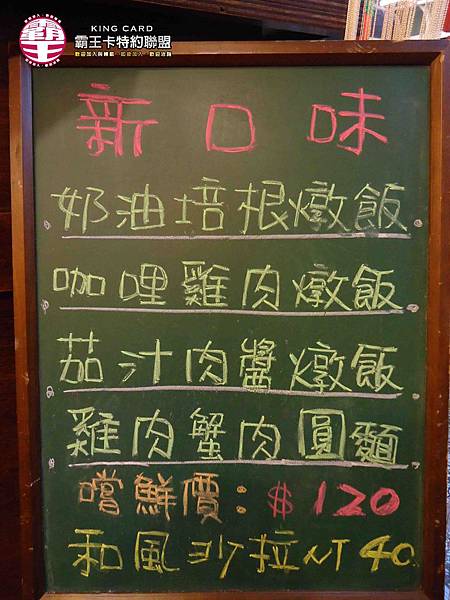 KING CARD
霸王卡特約聯盟
霸王
新口味
奶油培根燉飯
咖哩雞肉燉飯
茄汁肉醬燉飯
雞肉蟹肉圓麵
嚐鮮價:$120
和風沙拉NT40